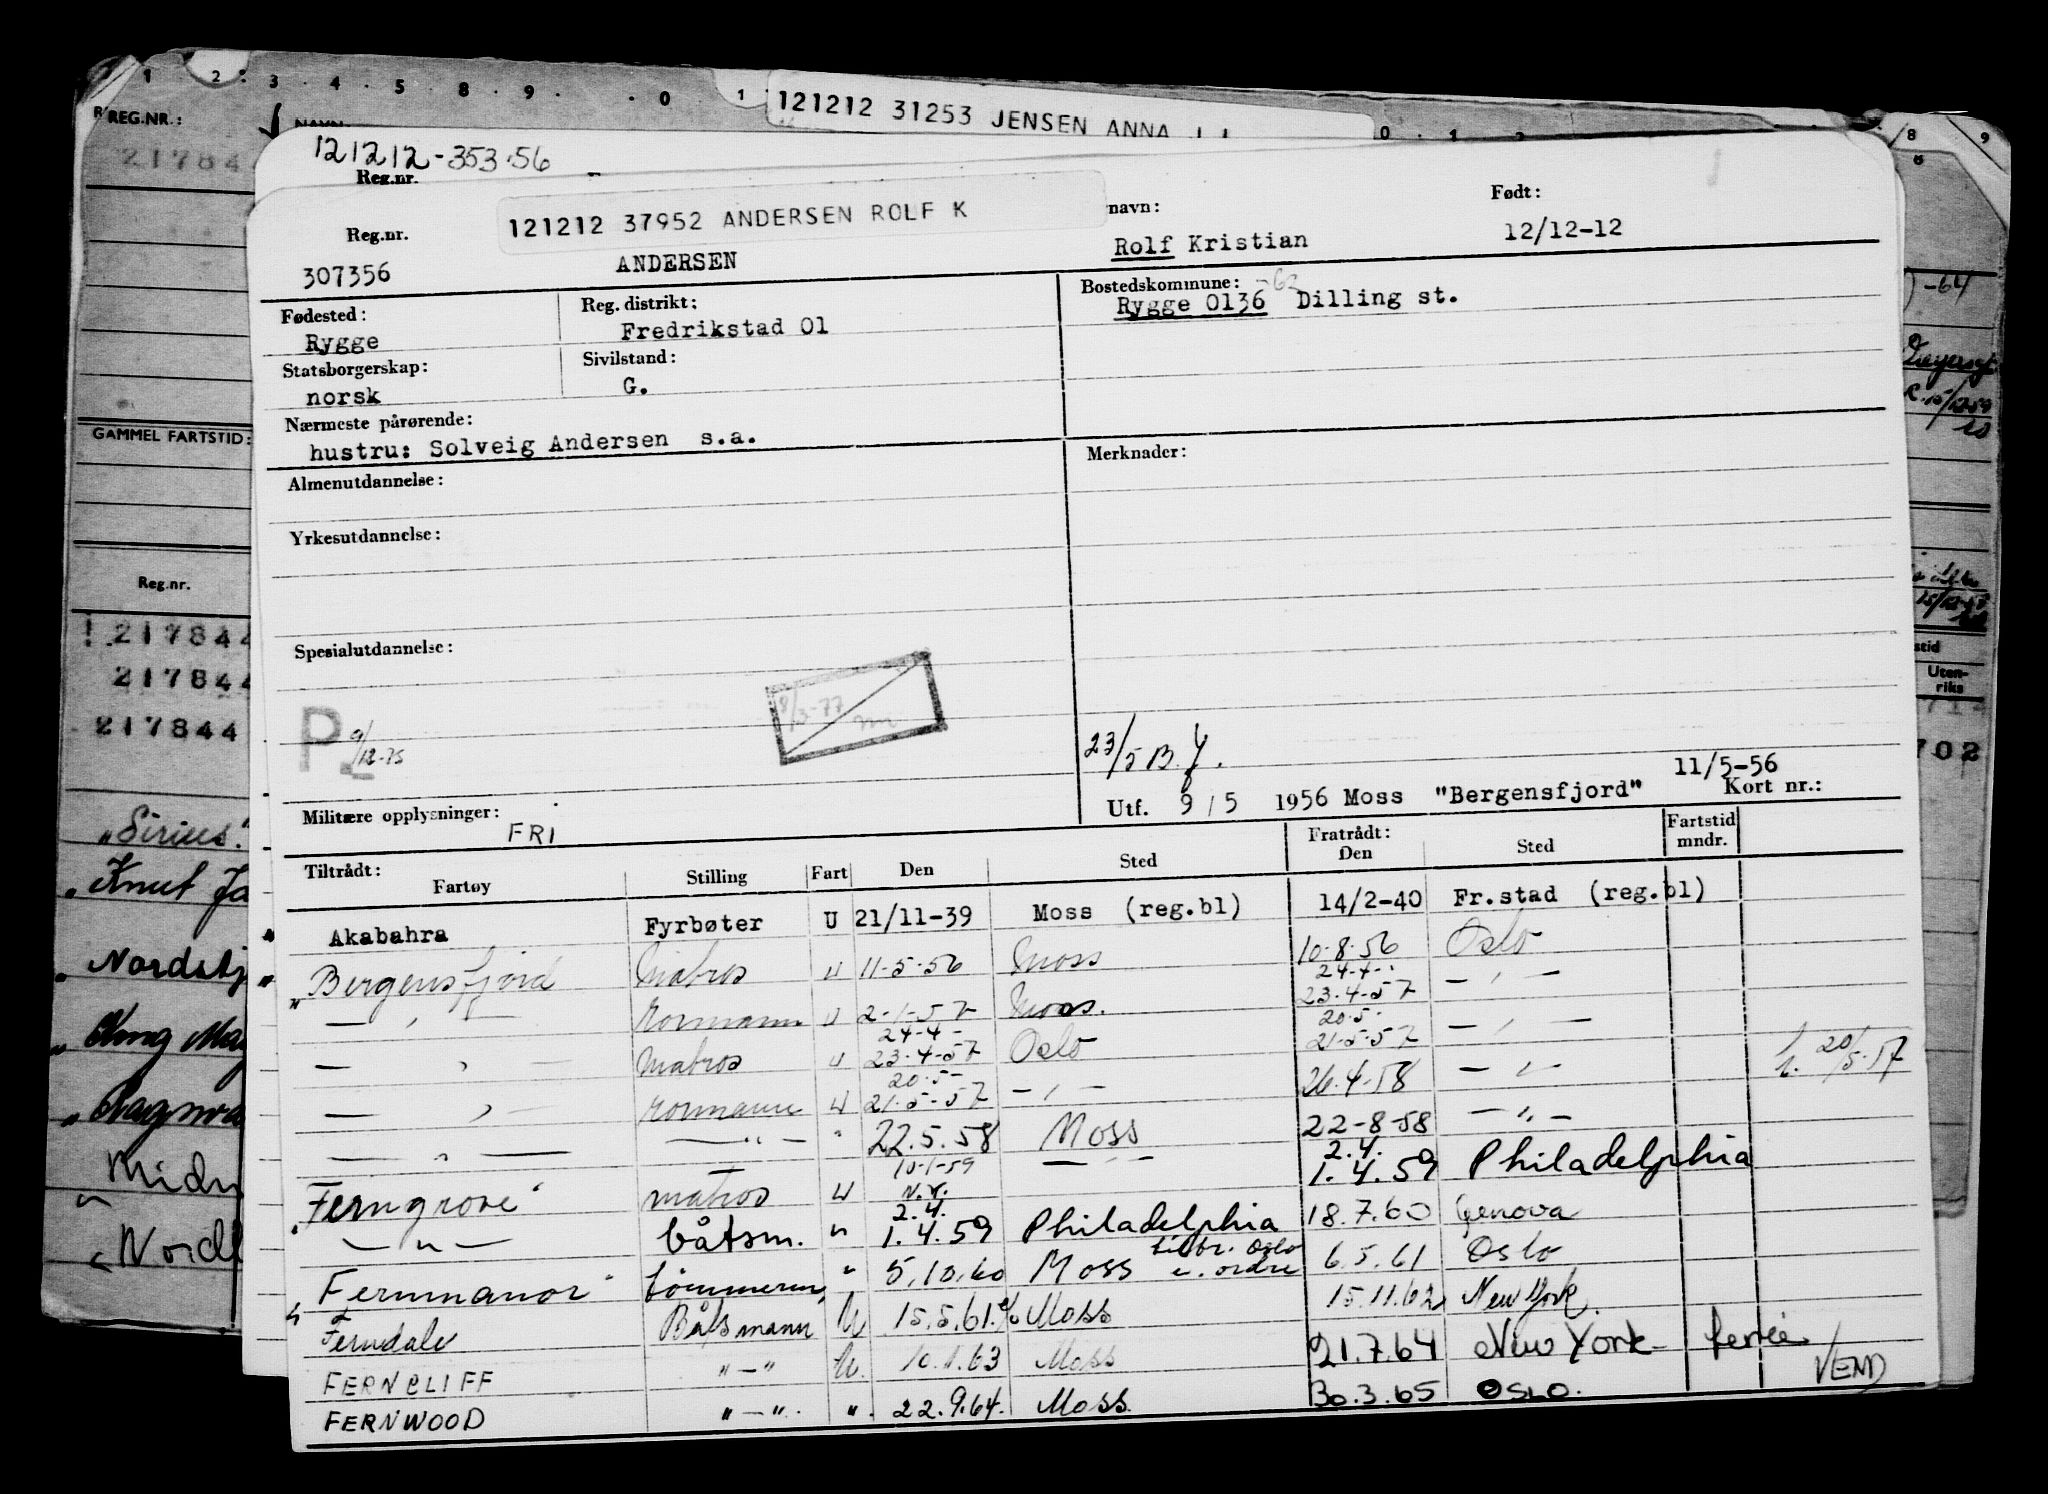 1 2 3 4 5 8 9 0 1
REG.NR.:
217844
121212 31253 JENSEN ANNA
121212-353.56
Reg.nr.
121212 37952 ANDERSEN ROLF K
navn:
Født:
Reg.nr.
307356
ANDERSEN
Rolf Kristian
12/12-12
Fødested:
Rygge
Reg. distrikt:
Fredrikstad 01
Bostedskommune:
Rygge 0136 Dilling st.
Statsborgerskap:
norsk
Sivilstand:
G.
Nærmeste pårørende:
hustru: Solveig Andersen s.a.
Merknader:
Almenutdannelse:
Yrkesutdannelse:
Spesialutdannelse:
P 9/12-75
8/3-77
23/5 B.
11/5-56
Utf. 9/5 1956 Moss "Bergensfjord" Kort nr.:
Militære opplysninger:
FRI
Tiltrådt:
Fartøy Stilling Fart Den Sted Fratrådt: Den Sted Fartstid mndr.
Akabahra Fyrbøter U 21/11-39 Moss (reg.bl) 14/2-40 Fr.stad (reg.bl)
" Bergensfjord Matros U 11-5-56 Moss 10-8-56 Oslo
24-4-
— " — rormann U 2-1-57 Moss. 23-4-57 — " —
24-4- 20-5-
— " — Matros U 23-4-57 Oslo 21-5-57 — " — 20/5-57
20-5-
— " — rormann U 21-5-57 — " — 26.4-58 — " —
— " — — " — " 22.5.58 Moss 22-8-58 — " —
10-1-59 2.4.
" Ferngrove matros U N.Y. — " — 1.4.59 Philadelphia
2.4.
— " — båtsm. " 1.4.59 Philadelphia 18.7.60 Genova
" Fernmanor tømmerm, " 5.10.60 Moss tilbr. Oslo e. ordre 6.5.61 Oslo
Ferndale Båtsmann U 15.5.61 Moss 15.11.62 New York.
FERNCLIFF " — " U. 10.1.63 Moss 21.7.64 New York ferie
FERNWOOD " — " ". 22.9.64. Moss 30.3.65 OSLO.
VEND
GAMMEL FARTSTID:
Reg.nr.
217844
217844
217844
"Sirius"
" Knut
" Ragnva
8 9
-64
stid
Uten-
riks
702